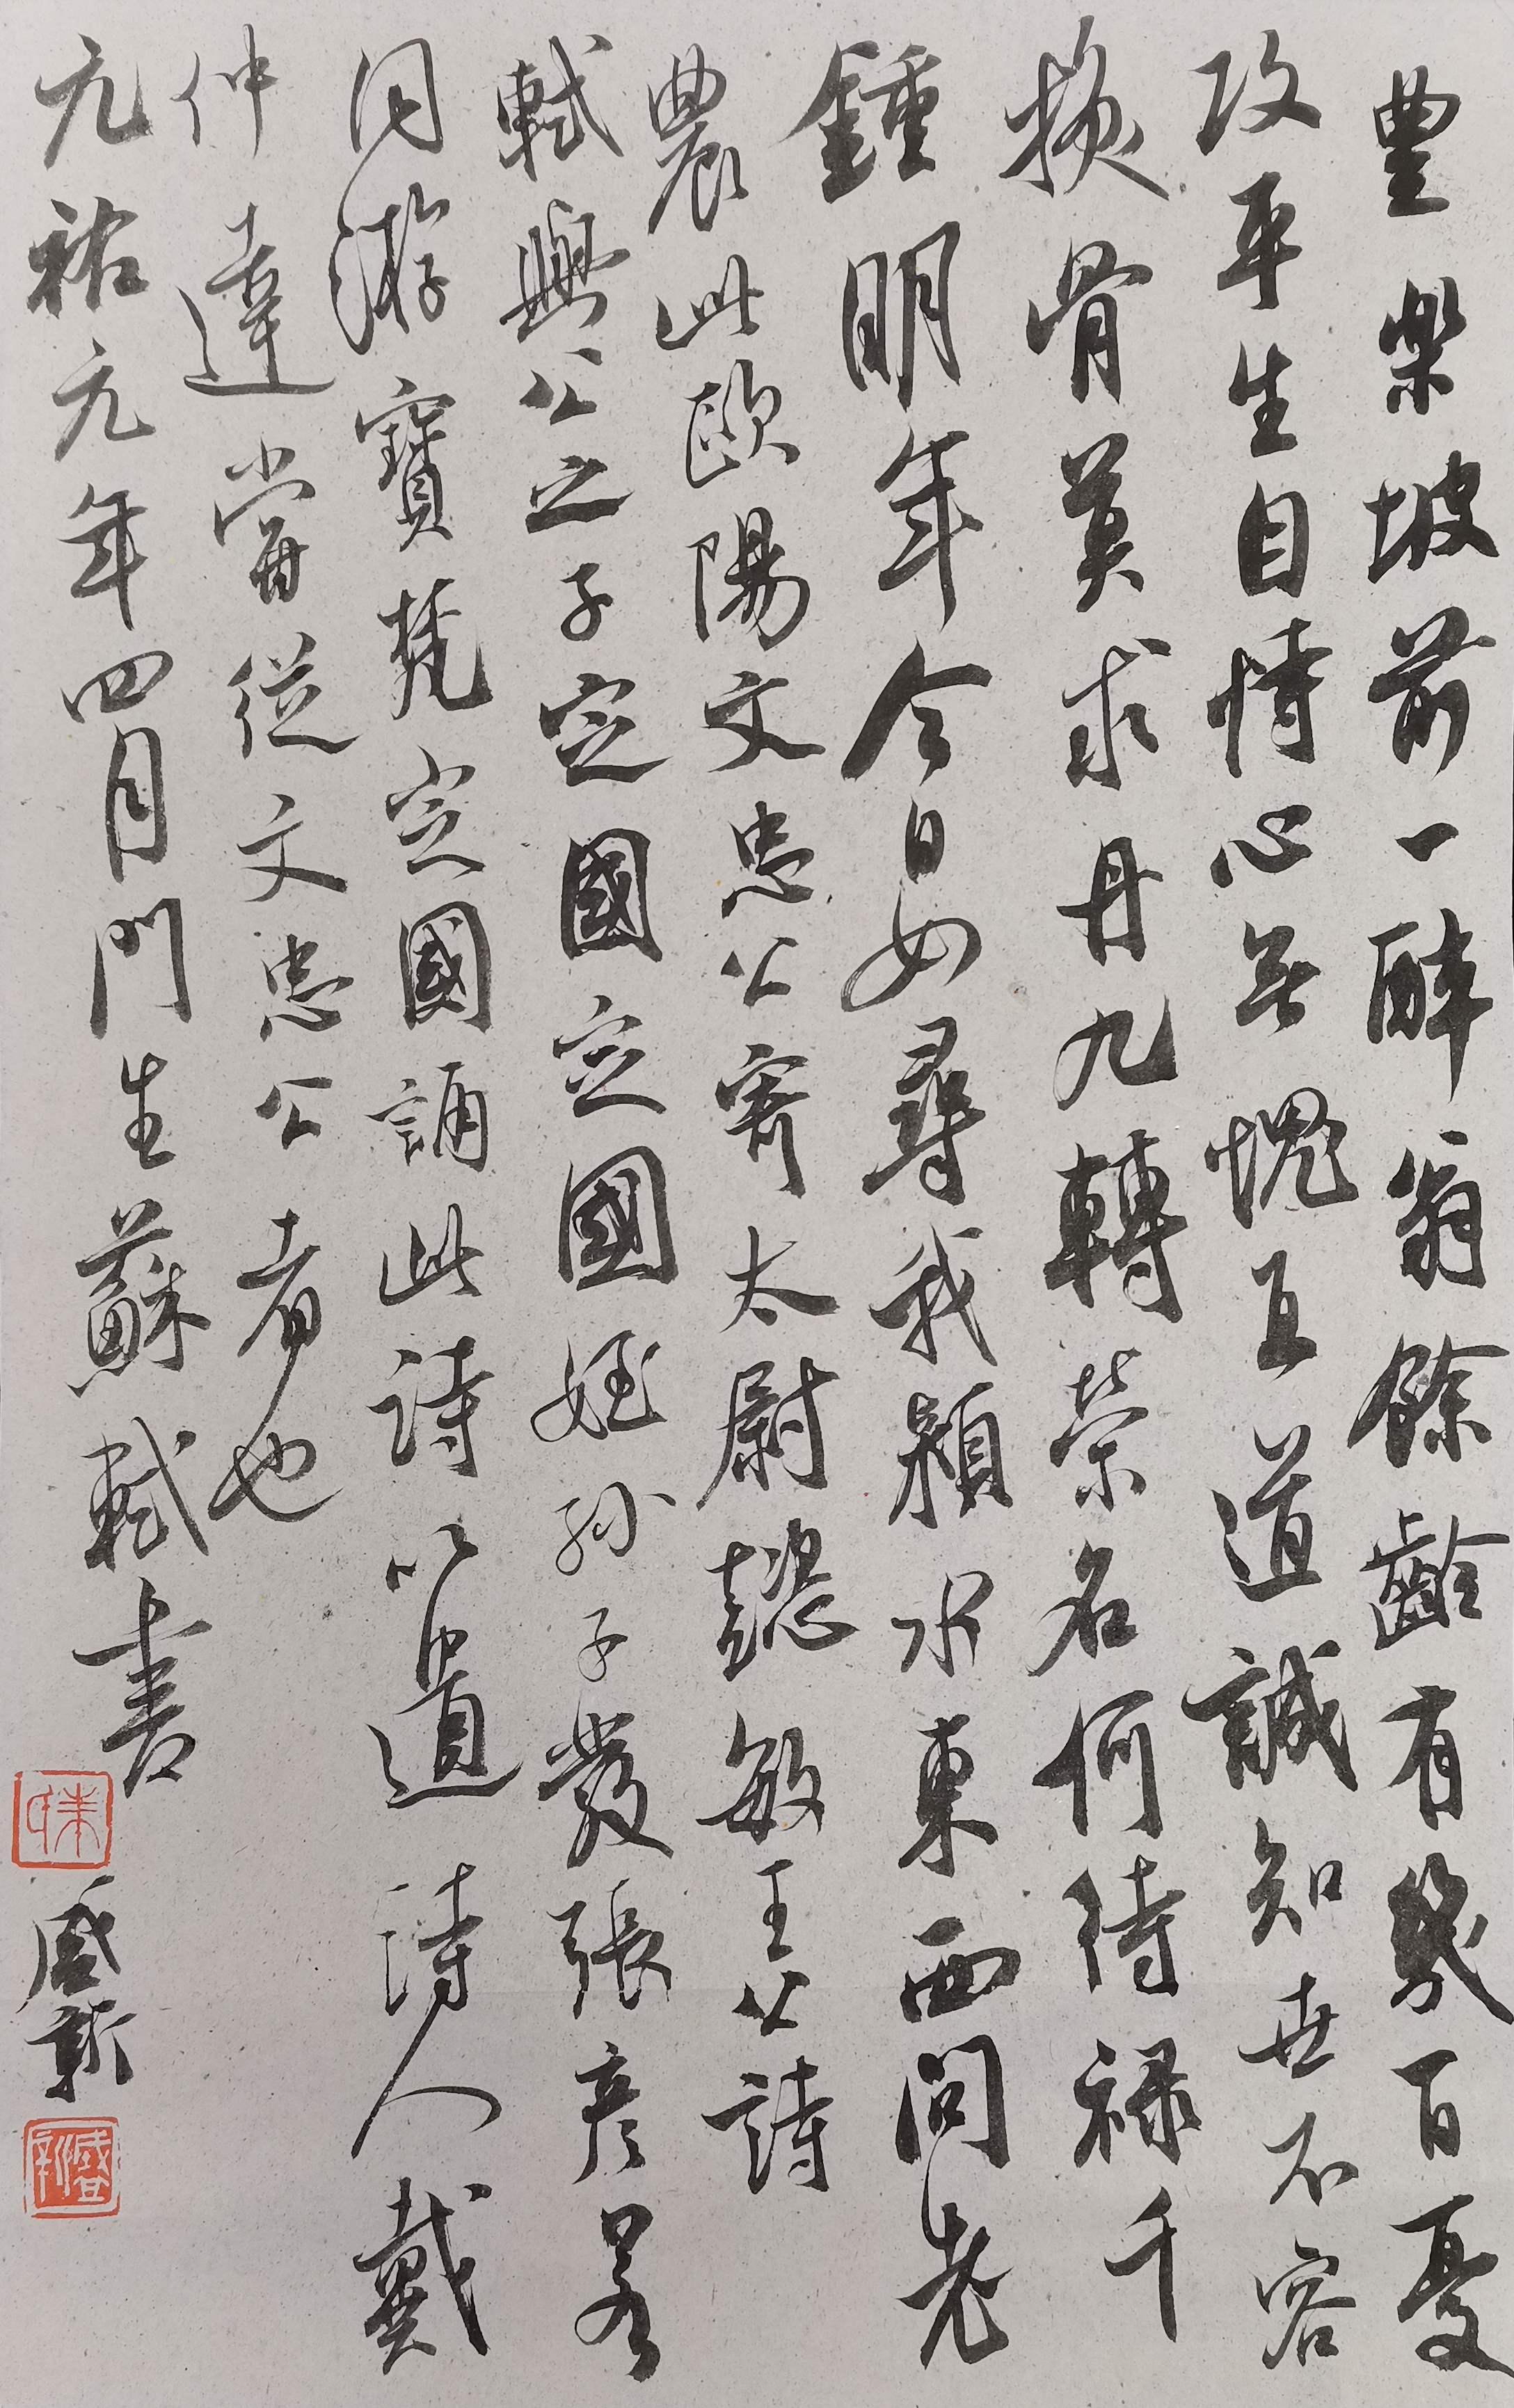 豐樂坡前一醉翁餘齡有幾百憂
攻平生自恃心無愧直道誠知世不容
換骨莫求丹九轉榮名何待祿千
鍾明年今日如尋我潁水東西問老
農此歐陽文忠公寄太尉懿敏王公詩
軾與公之子定國定國姪孫子發張彥若
同游寶梵定國誦此詩以遺詩人戴
仲達當從文忠公者也
元祐元年四月門生蘇軾書
盛新